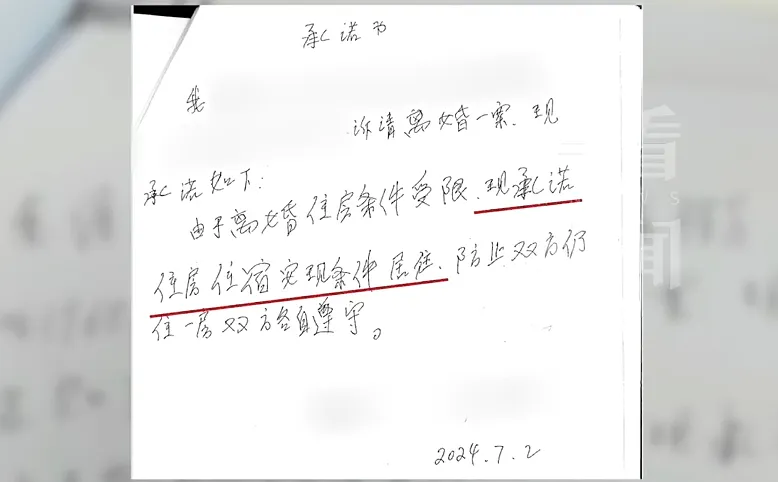 承诺书
我
诉请离婚一案.现
承诺如下:
由于离婚住房条件受限.现承诺
住房住宿实现条件居住.防止双方仍
住一房双方各自遵守。
2024.7.2
看
闻